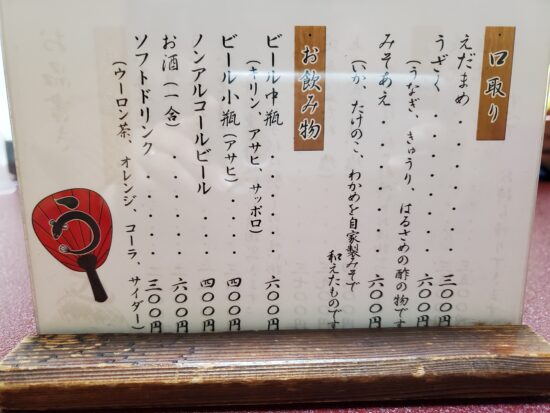 口取り
えだまめ・・・・・・・三〇〇円
うざく・・・・・・・六〇〇円
(うなぎ、きゅうり、はるさめの酢の物です)
みそあえ・・・・・・・六〇〇円
(いか、たけのこ、わかめを自家製みそで
和えたものです)
お飲み物
ビール中瓶・・・・・六〇〇円
(キリン、アサヒ、サッポロ)
ビール小瓶(アサヒ)・・・四〇〇円
ノンアルコールビール・・・四〇〇円
お酒(一合)・・・・・六〇〇円
ソフトドリンク・・・・・三〇〇円
(ウーロン茶、オレンジ、コーラ、サイダー)
う